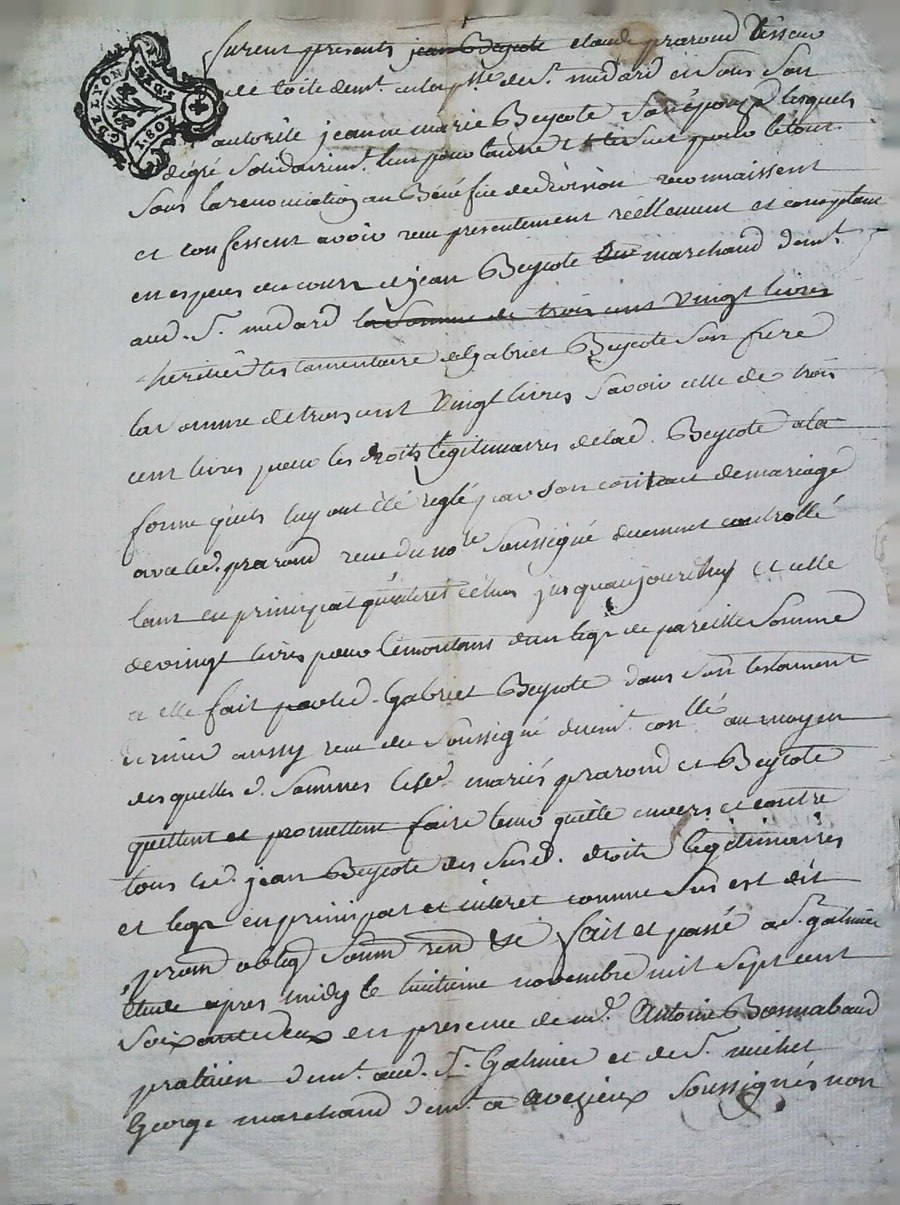 G. DE LYON
1.S.8D.
furent presents jean Beycote claude prarond tisseur
de toile demt. en la psse. de st. medard et sous son
autorité jeanne marie Beycote son épouse lesquels
degré solidairemt. l'un pour l'autre et un seul pour le tout
sous la renonciation au Bénéfice de division reconnaissent
et confessent avoir reçu presentement réellement et comptant
en especes du cours de jean Beycote marchand demt.
aud. st. medard la somme de trois cent vingt livres
heritier testamentaire de gabriel Beycote son frere
la somme de trois cent vingt livres savoir celle de trois
cent livres pour les droits légitimaires de lad. Beycote a la
forme qu'ils luy ont été reglé par son contract de mariage
avec led. prarond reçu du nore soussigné duement controllé
tant en principal qu'interet échus jusqu'aujourdhuy et celle
de vingt livres pour le montant d'un legs de pareille somme
a elle fait par led. Gabriel Beycote dans son testament
dernier aussy reçu du soussigné duemt. conllé au moyen
desquelles d. sommes lesd. mariés prarond et Beycote
quittent et promettent faire tenir quitte envers et contre
tous led. jean Beycote des susd. droits légitimaires
et legs en principal et interet comme sus est dit
prom oblig soum ren &c fait et passé a st. galmier
étude apres midy le huitieme novembre mil sept cent
soixante deux en presence de me. Antoine Bonnabaud
praticien demt. aud. st. Galmier et de sr. michel
George marchand demt. a aveizieux soussignés non